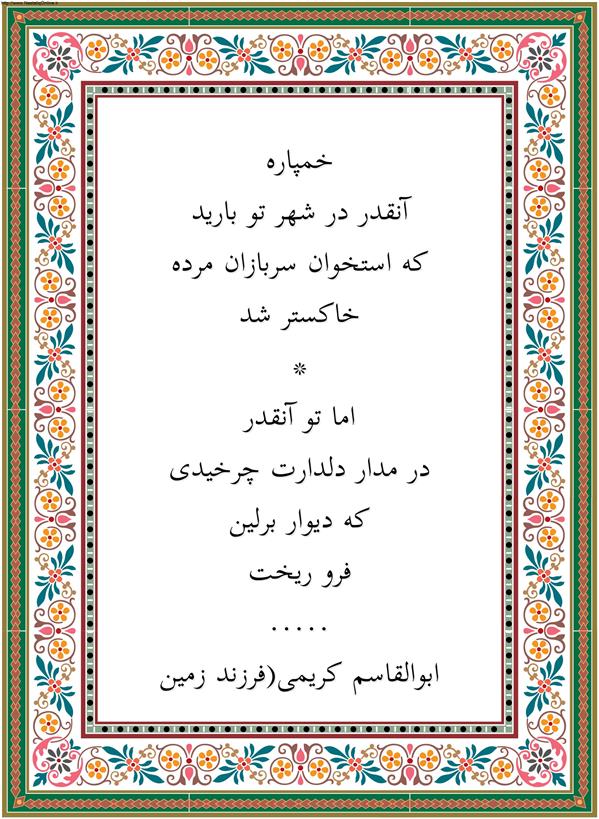 http://www.NastaliqOnline.ir
خمپاره
آنقدر در شهر تو بارید
که استخوان سربازان مرده
خاکستر شد
*
اما تو آنقدر
در مدار دلدارت چرخیدی
که دیوار برلین
فرو ریخت
.....
ابوالقاسم کریمی(فرزند زمین